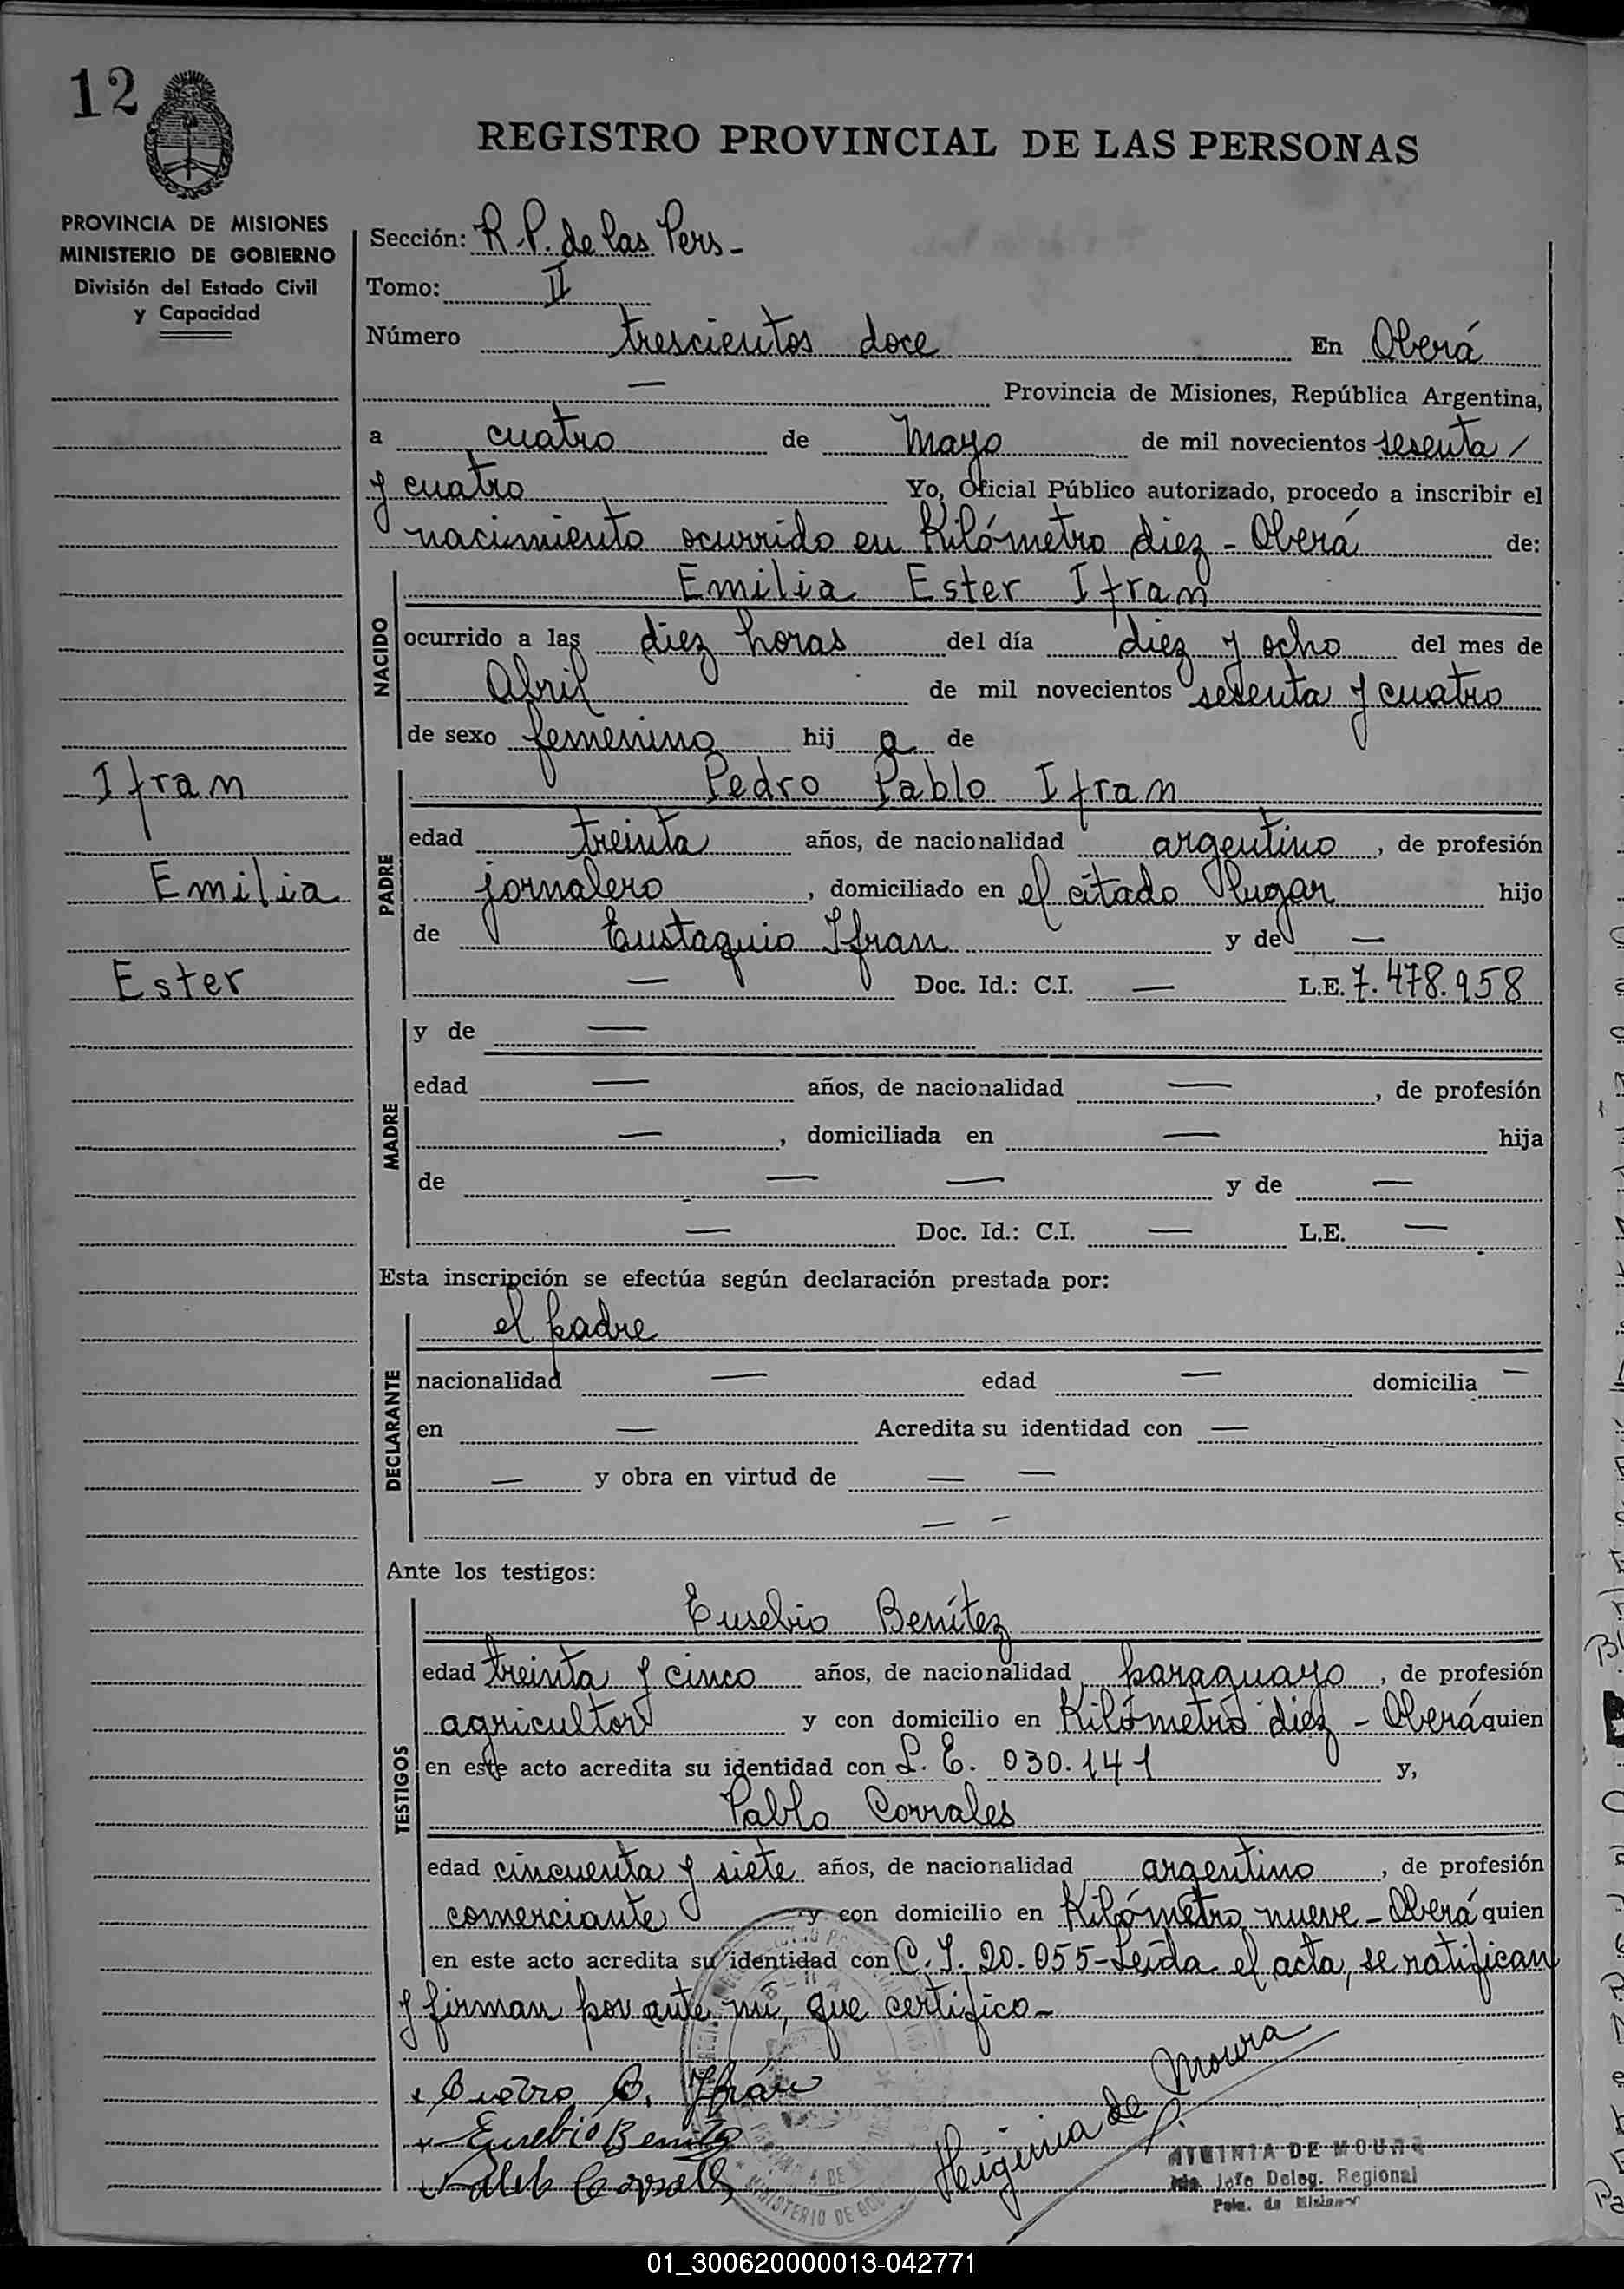 12
REGISTRO PROVINCIAL DE LAS PERSONAS
PROVINCIA DE MISIONES
MINISTERIO DE GOBIERNO
División del Estado Civil
y Capacidad
Ifran
Emilia
Ester
Sección: R.P. de las Pers-
Tomo: II
Número trescientos doce En Oberá
— Provincia de Misiones, República Argentina,
a cuatro de Mayo de mil novecientos sesenta /
y cuatro Yo, Oficial Público autorizado, procedo a inscribir el
nacimiento ocurrido en Kilómetro diez - Oberá de:
NACIDO
Emilia Ester Ifran
ocurrido a las diez horas del día diez y ocho del mes de
Abril de mil novecientos sesenta y cuatro
de sexo femenino hij a de
PADRE
Pedro Pablo Ifran
edad treinta años, de nacionalidad argentino, de profesión
jornalero, domiciliado en el citado lugar hijo
de Eustaquio Ifran y de —
— Doc. Id.: C.I. — L.E. 7.478.958
MADRE
y de —
edad — años, de nacionalidad —, de profesión
—, domiciliada en — hija
de — — y de —
— Doc. Id.: C.I. — L.E. —
Esta inscripción se efectúa según declaración prestada por:
DECLARANTE
el padre
nacionalidad — edad — domicilia —
en — Acredita su identidad con —
— y obra en virtud de — —
— —
Ante los testigos:
TESTIGOS
Eusebio Benítez
edad treinta y cinco años, de nacionalidad paraguayo, de profesión
agricultor y con domicilio en Kilómetro diez - Oberá quien
en este acto acredita su identidad con L.E. 030.141 y,
Pablo Corrales
edad cincuenta y siete años, de nacionalidad argentino, de profesión
comerciante y con domicilio en Kilómetro nueve - Oberá quien
en este acto acredita su identidad con C.I. 20.055 - Leída el acta, se ratifican
y firman por ante mi, que certifico-
Ifrán
Eusebio Benitez
Higinia de Moura
HIGINIA DE MOURA
Jefe Deleg. Regional
Pcia. de Misiones
MINISTERIO DE
01_300620000013-042771